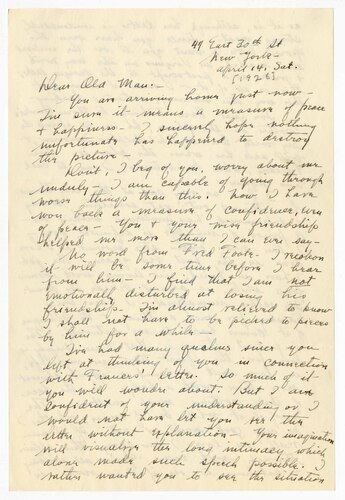 49 East 30th St
New York -
April 14. Sat.
[1928]
Dear Old Man: -
You are arriving home just now -
I'm sure it means a measure of peace
& happiness. I sincerely hope nothing
unfortunate has happened to destroy
the picture -
Don't, I beg of you, worry about me
unduly - I am capable of going through
worse things than this. Now I have
won back a measure of confidence, even
of peace - You & your wise friendship
helped me more than I can ever say -
No word from Fred Foote. I reckon
it will be some time before I hear
from him - I find that I am not
emotionally disturbed at losing his
friendship. I'm almost relieved to know
I shall not have to be picked to pieces
by him for a while -
I've had many qualms since you
left at thinking of you in connection
with Frances' letter. So much of it
you will wonder about. But I am
confident of your understanding or I
would not have let you see the
letter without explanation - Your imagination
will visualize the long intimacy which
alone made such speech possible. I
rather wanted you to see the situation